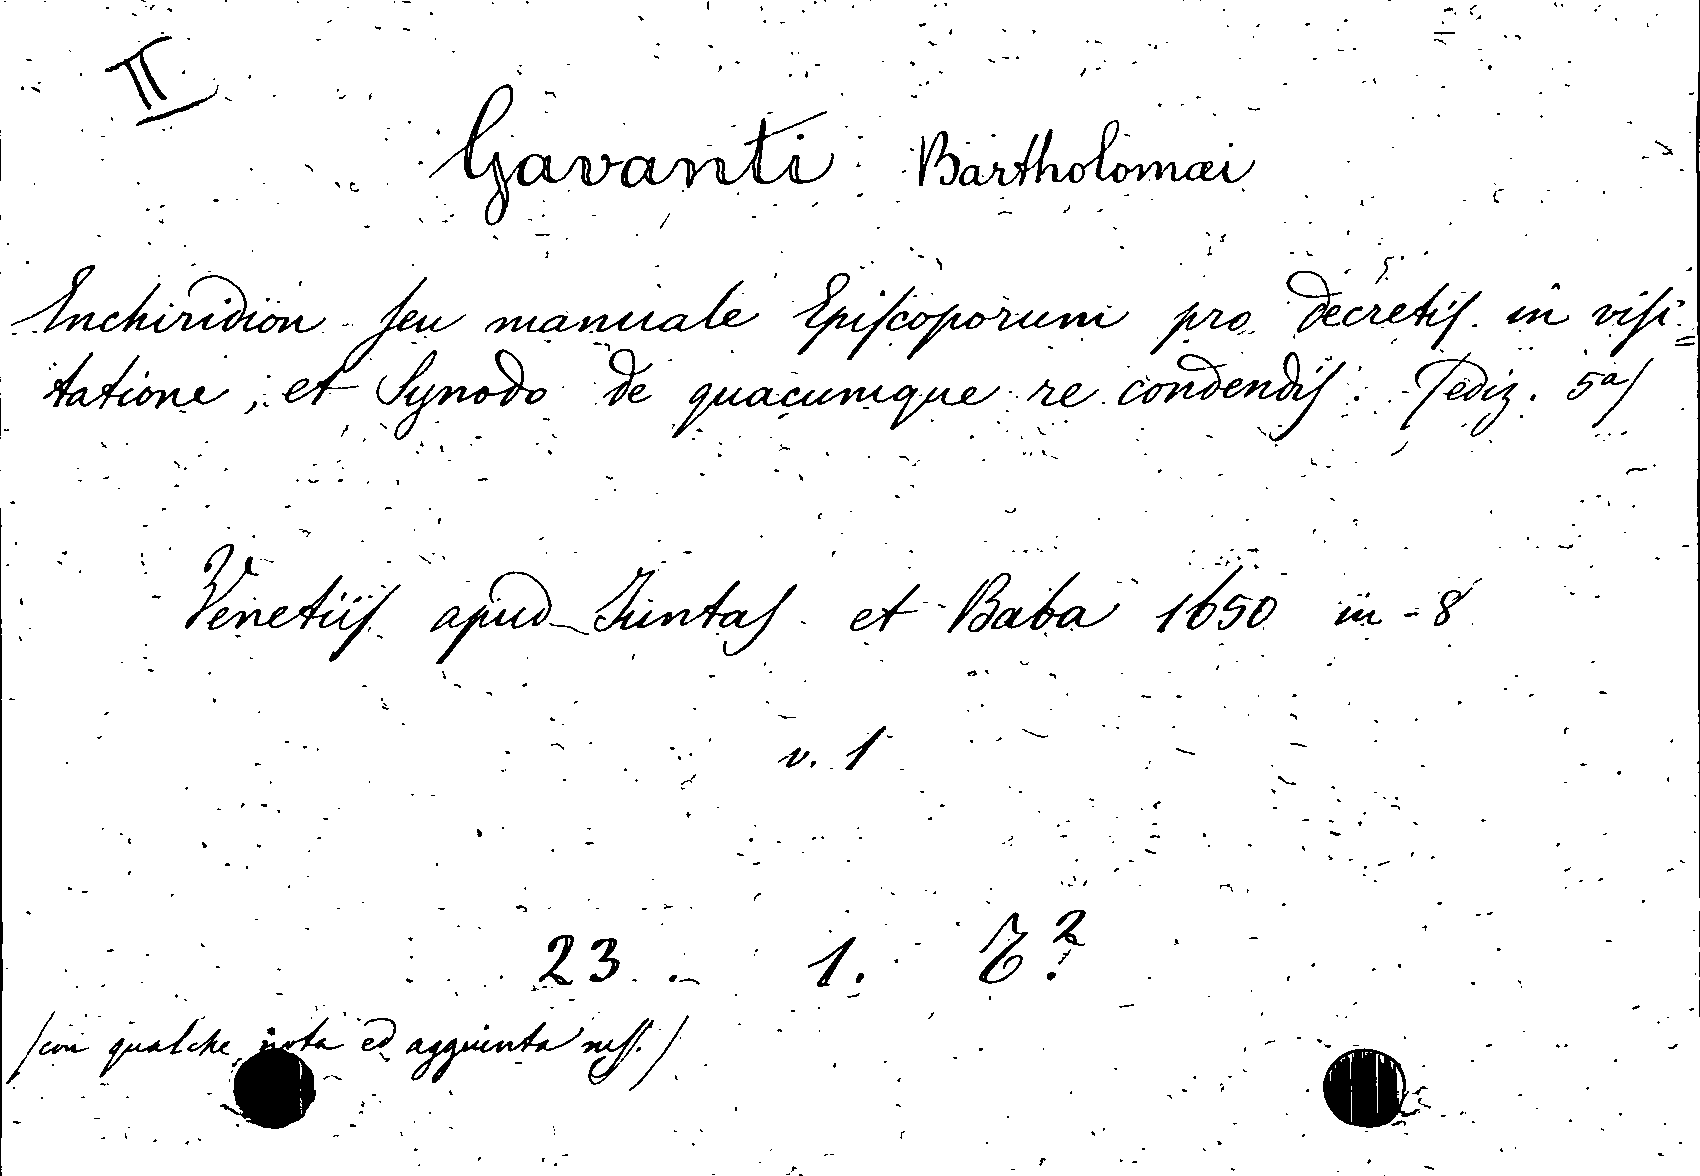 II
Gavanti Bartholomæi
Enchiridion seu manuale Episcoporum pro decretis in visi=
tatione, et Synodo de quacumque re condendis. (ediz. 5ª)
Venetiis apud Juntas et Baba 1650 in-8
v. 1
23. 1.
(con qualche nota ed aggiunta mss.)